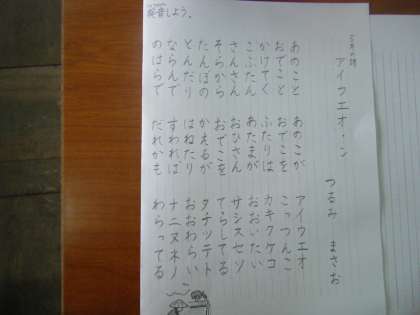 アイウエオ・ン
つるみ まさお
あのこと あのこが アイウエオ
おでこと おでこを こっつんこ
かけてく ふたりは カキクケコ
こぶたん あたまが おおいたい
さんさん おひさん サシスセソ
そらから おでこを てらしてる
たんぼの かえるが タチツテト
とんだり はねたり おおわらい
ならんで すわれば ナニヌネノ
のはらで だれかも わらってる
音しよう。